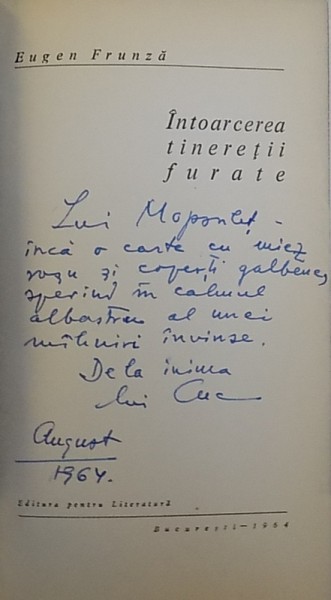 Eugen Frunză
Întoarcerea
tinereții
furate
Lui Mopsuleț -
încă o carte cu miez
roșu și coperți galbene,
sperind în calmul
albastru al unei
mâhniri învinse.
De la inima
lui Cuc
August
1964.
Editura pentru Literatură
București - 1964